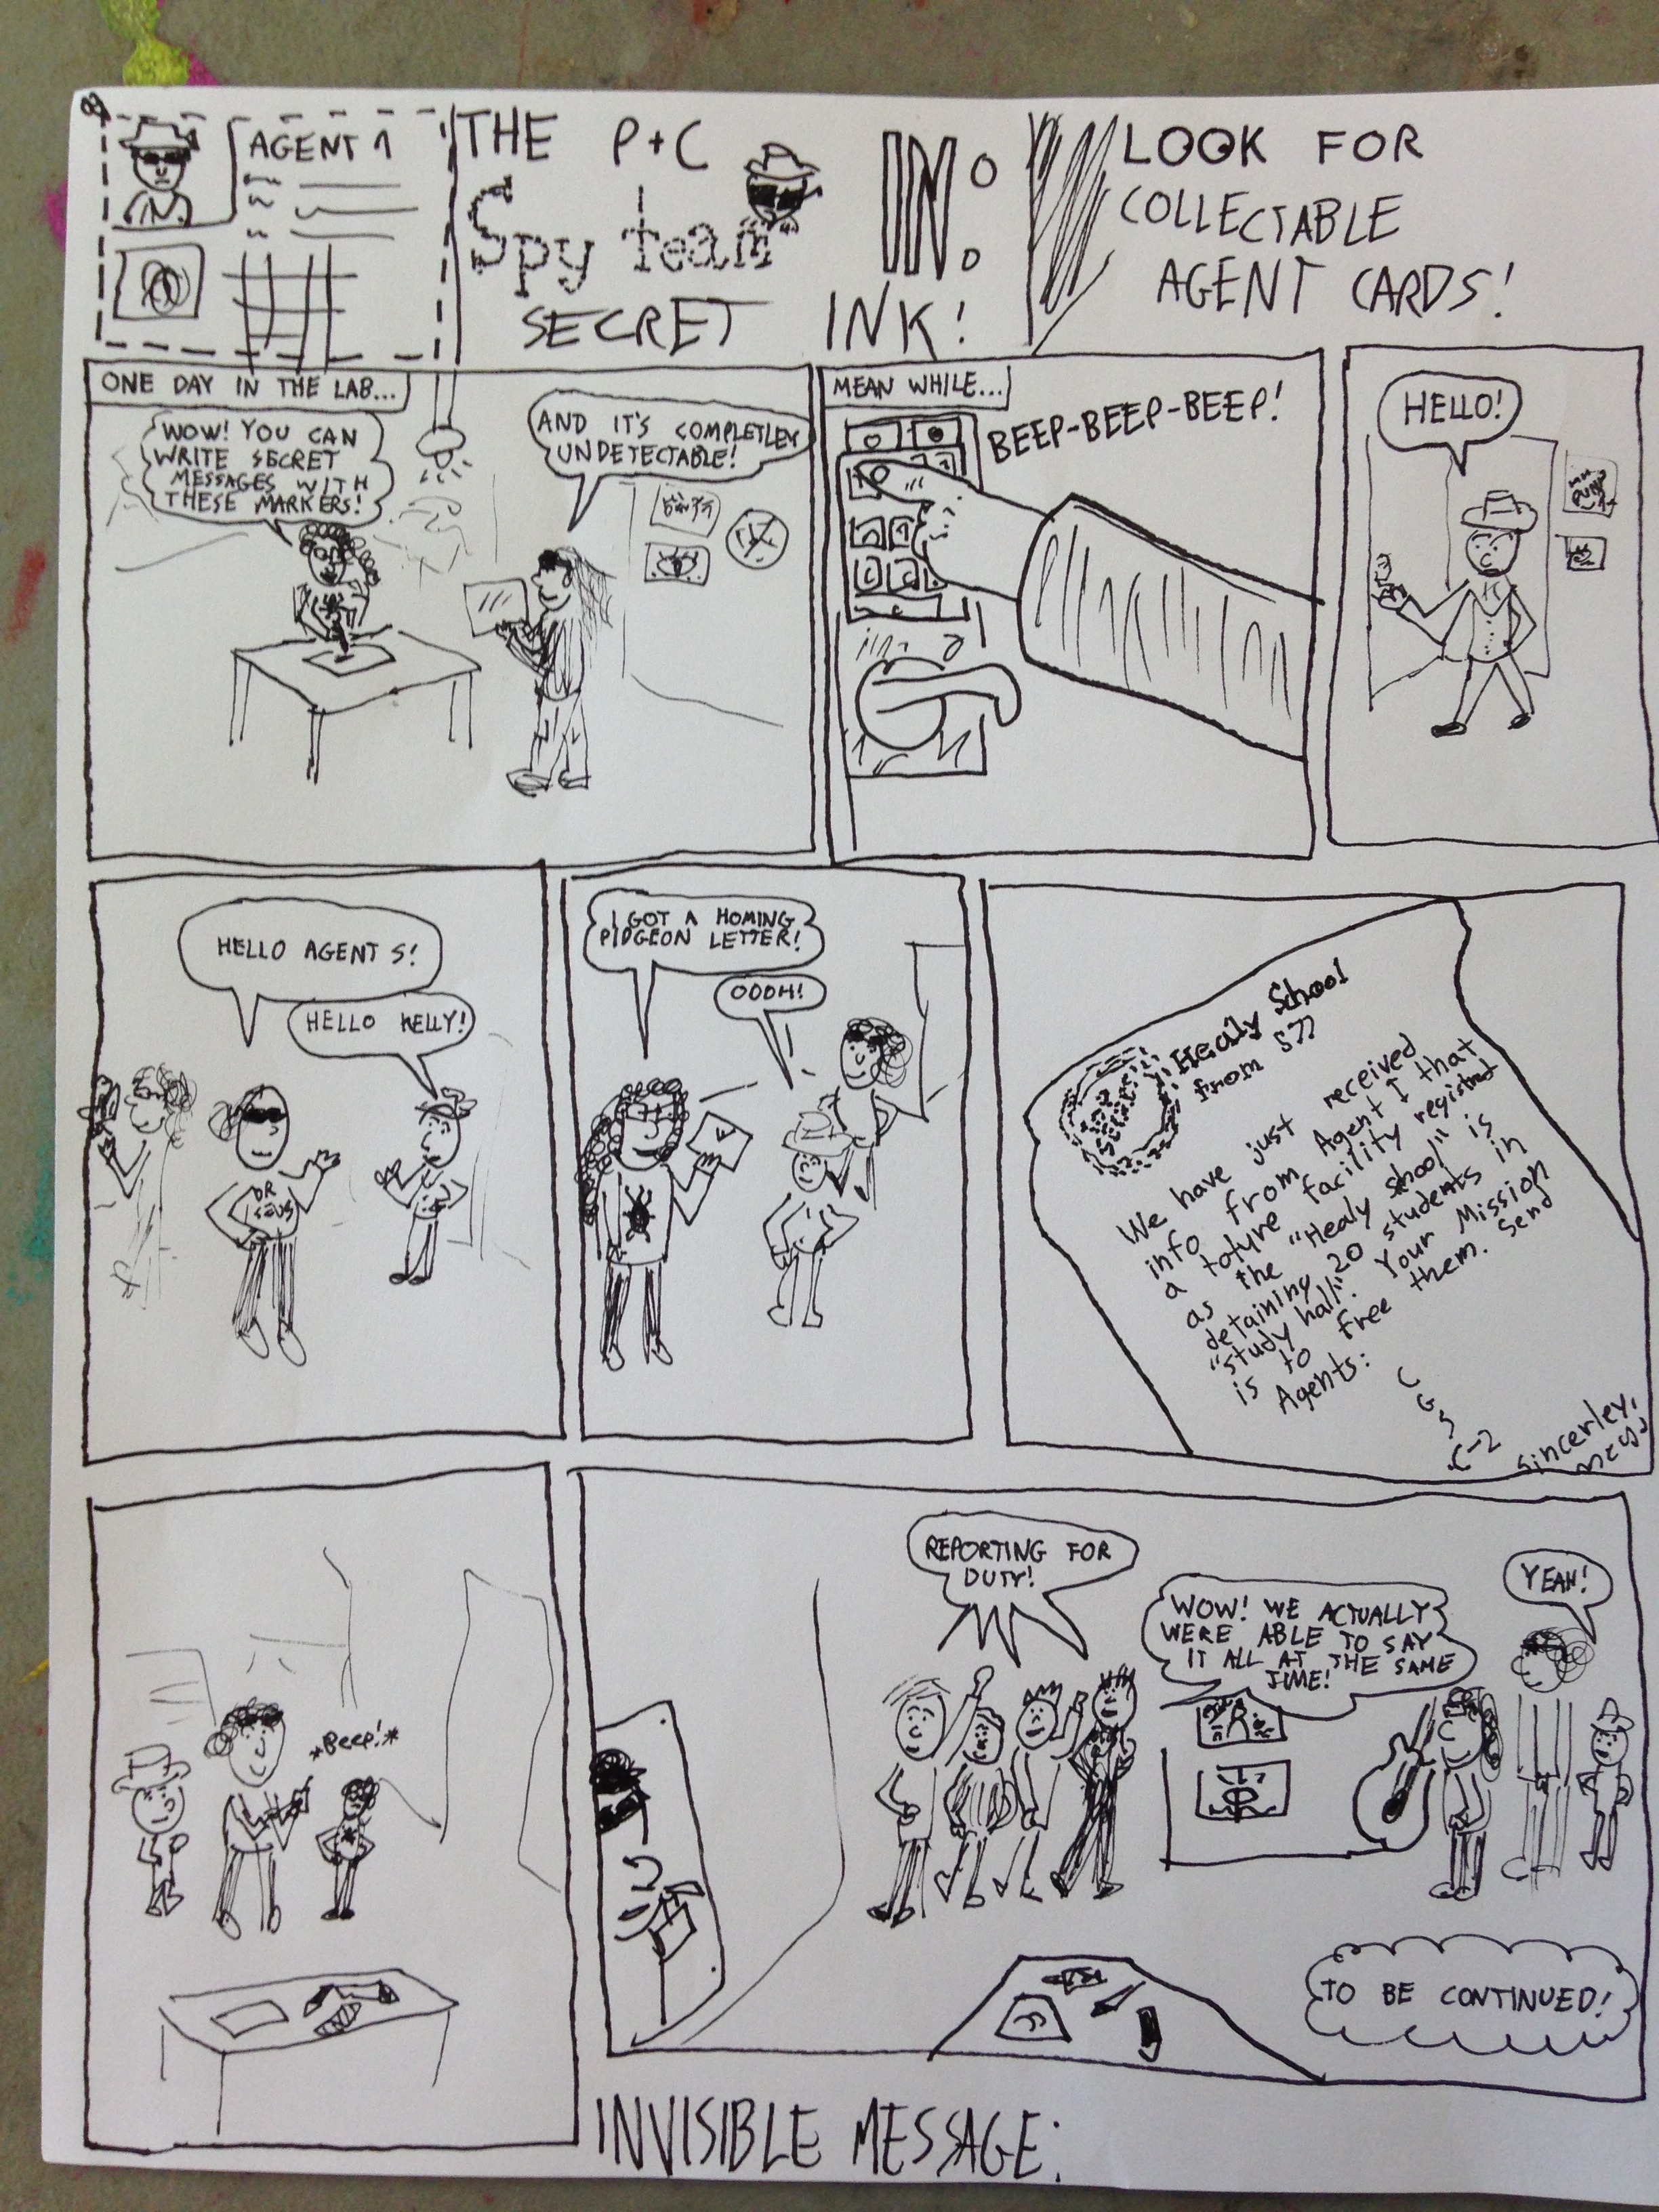 AGENT 1
THE P+C
Spy team
IN:
SECRET INK!
LOOK FOR
COLLECTABLE
AGENT CARDS!
ONE DAY IN THE LAB...
WOW! YOU CAN
WRITE SECRET
MESSAGES WITH
THESE MARKERS!
AND IT'S COMPLETLEY
UNDETECTABLE!
MEAN WHILE...
BEEP-BEEP-BEEP!
HELLO!
HELLO AGENT S!
HELLO KELLY!
DR
I GOT A HOMING
PIDGEON LETTER!
OOOH!
Healy School
from S77
We have just received
info from Agent I that
a toture facility registred
as the "Healy school" is
detaining 20 students in
"study hall". Your Mission
is to free them. Send
Agents:
C
G
S
C-2
Sincerley,
*Beep!*
REPORTING FOR
DUTY!
WOW! WE ACTUALLY
WERE ABLE TO SAY
IT ALL AT THE SAME
TIME!
YEAH!
TO BE CONTINUED!
INVISIBLE MESSAGE: